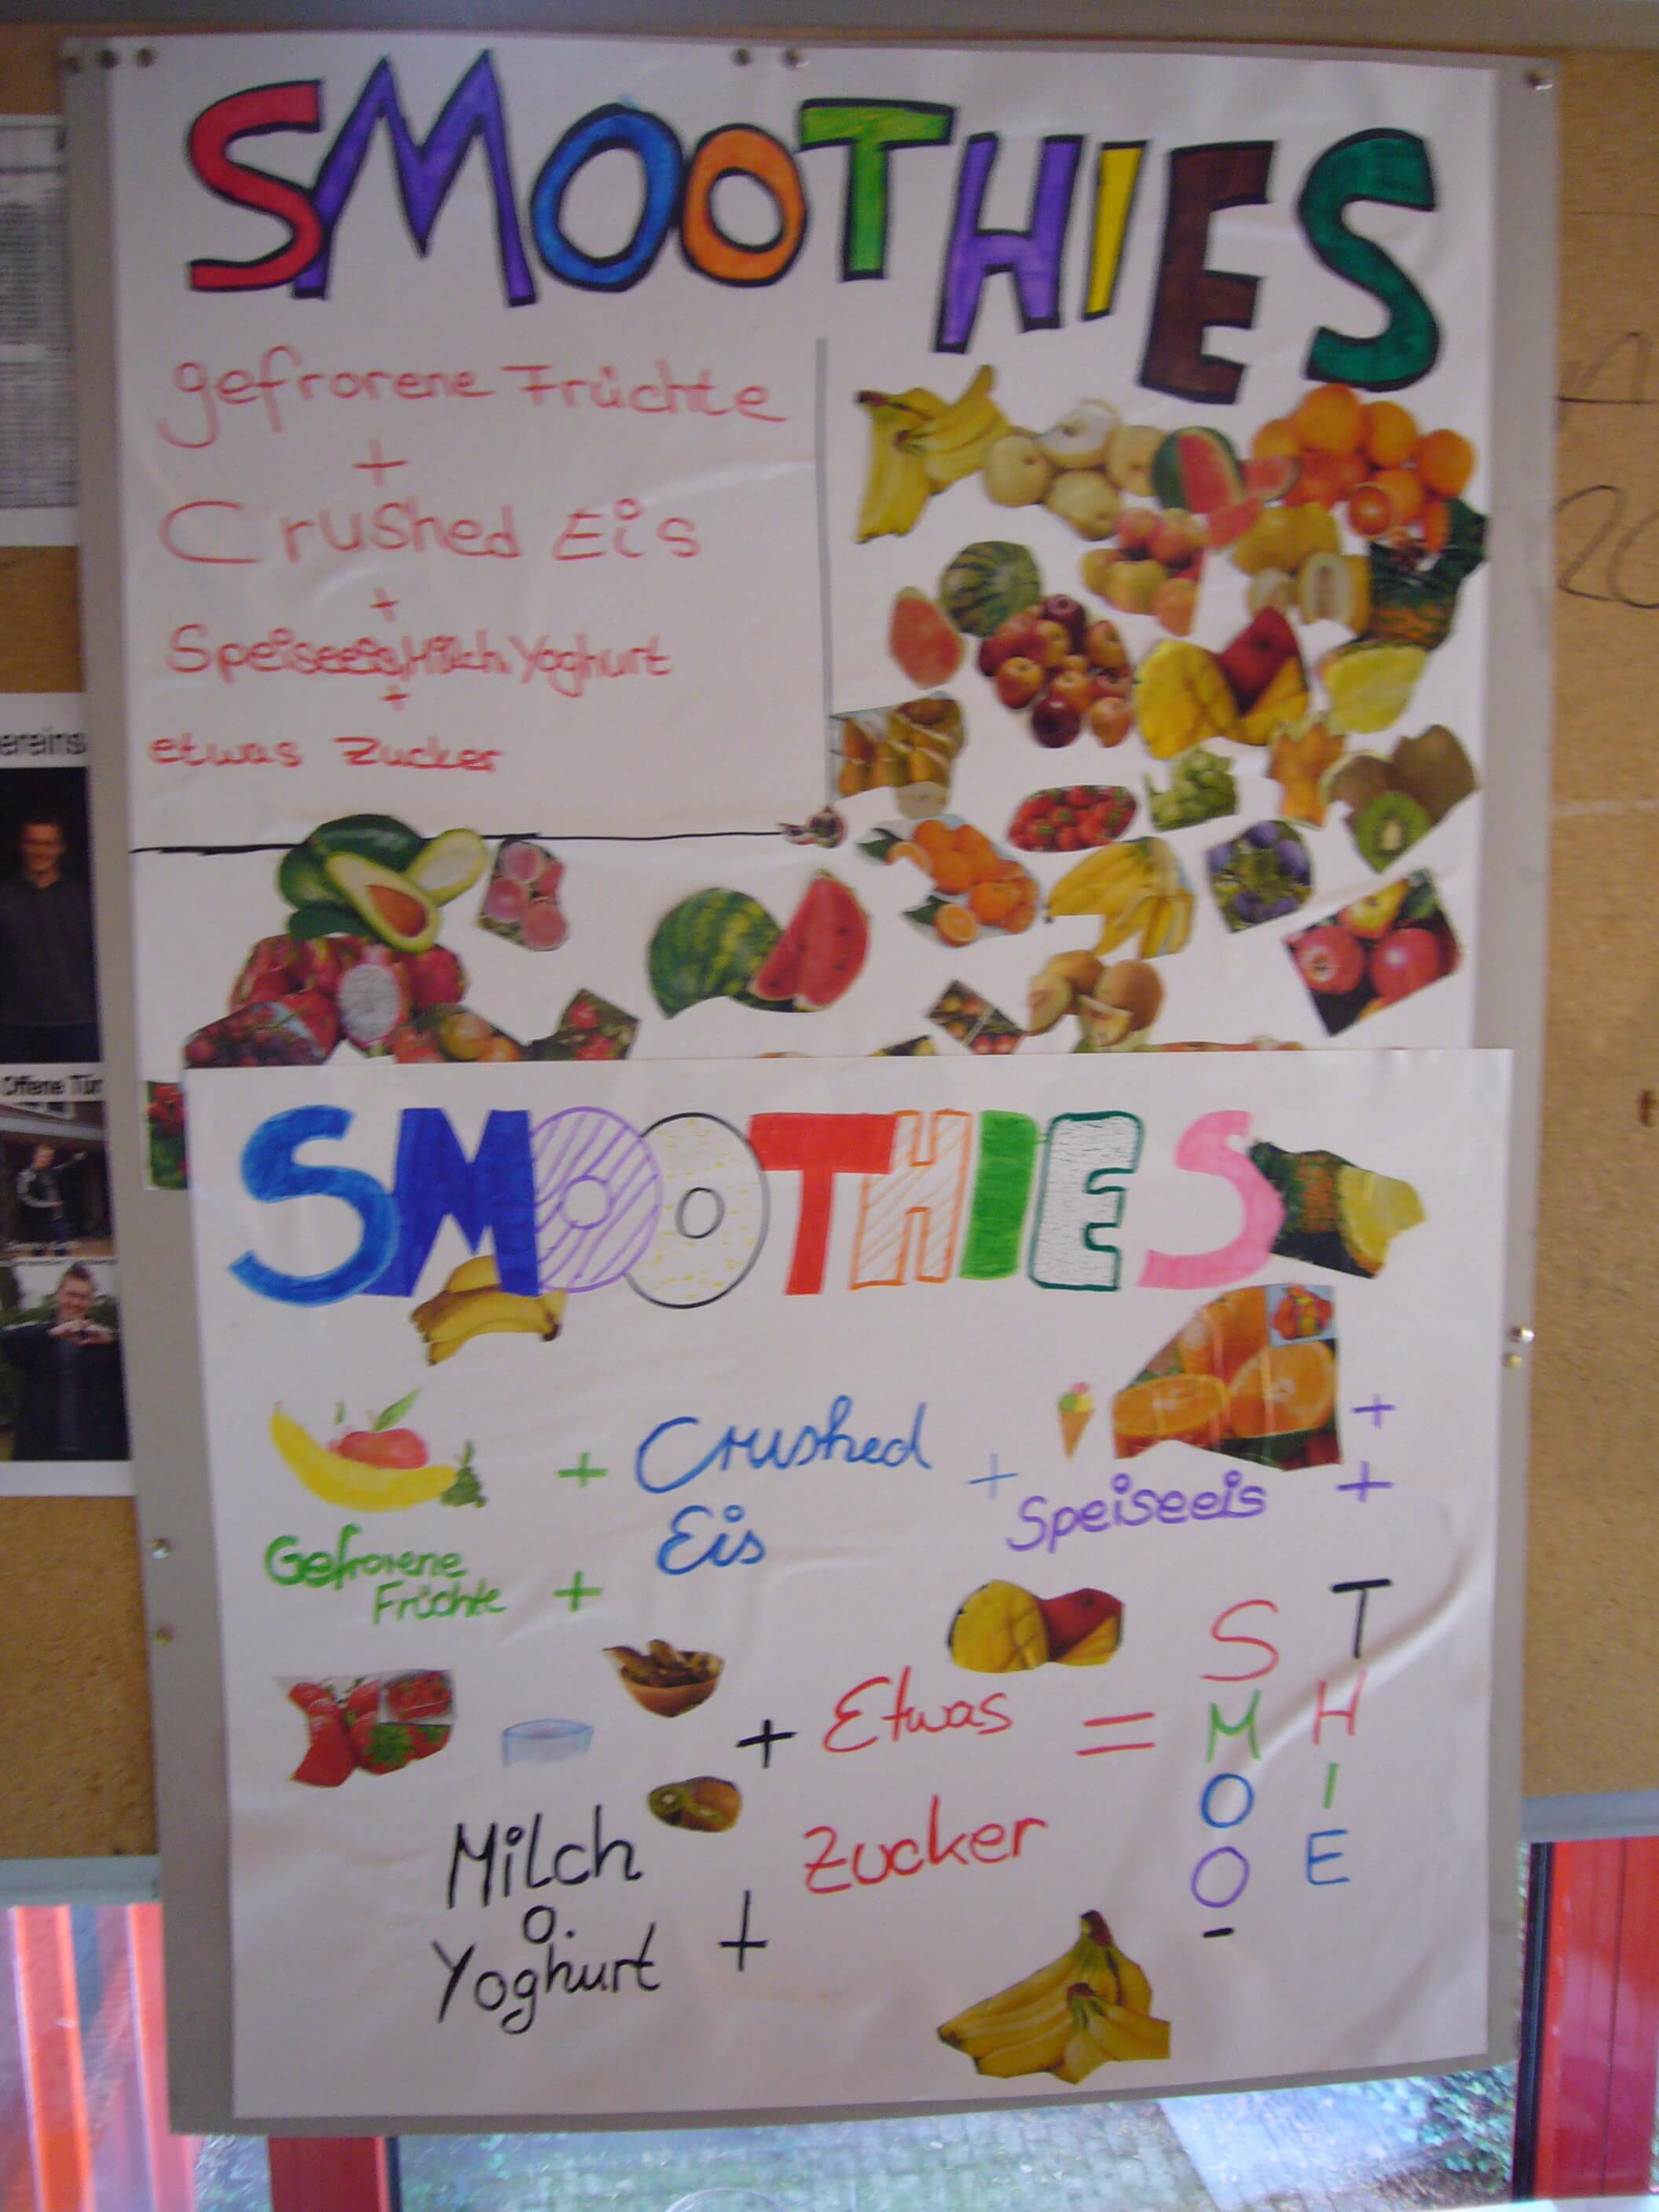 SMOOTHIES
gefrorene Früchte
+
Crushed Eis
+
Speiseeis, Milch, Yoghurt
+
etwas Zucker
SMOOTHIES
+ Crushed + +
Eis
Speiseeis +
Gefrorene
Früchte +
+ Etwas =
Zucker
Milch
o.
Yoghurt +
S
M
O
O
-
T
H
I
E
ereins
Offene Tür